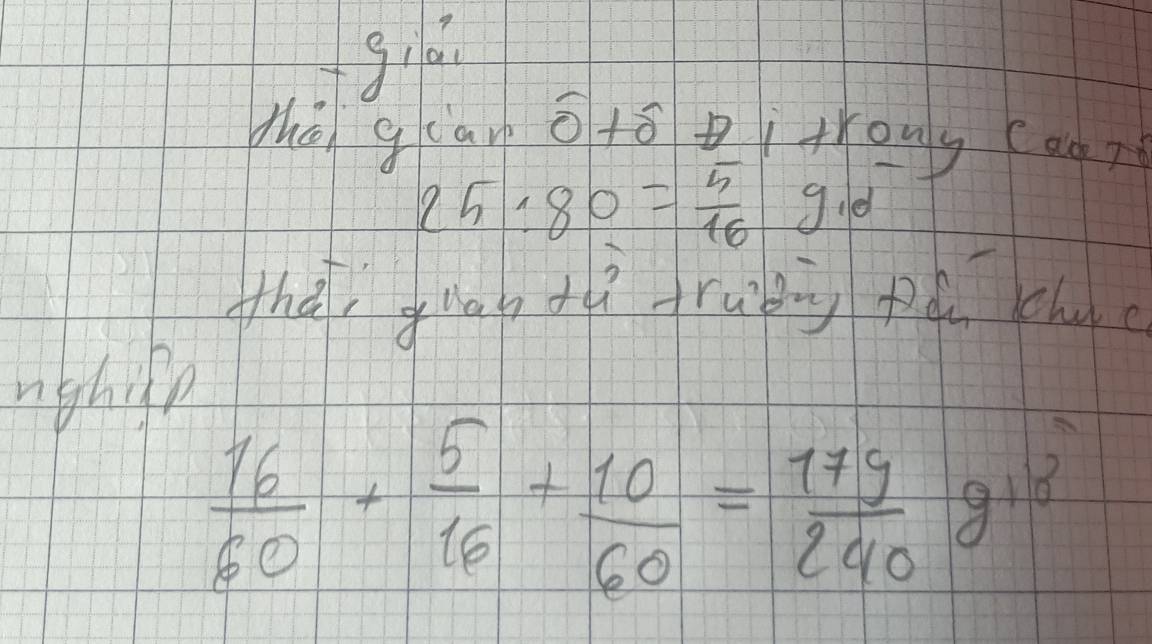 giải
thời gian ô tô Đi trong cao tố
25 : 80 = 5/16 giờ
thời gian từ trường Đến khu cô
nghiệp
16/60 + 5/16 + 10/60 = 179/240 giờ